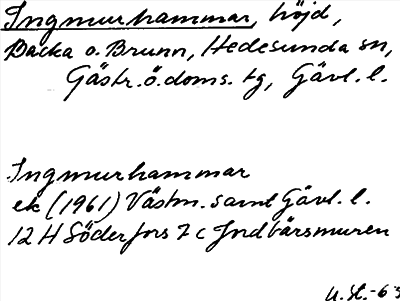 Ingmurhammar, höjd,
Backa o. Brunn, Hedesunda sn,
Gästr. ö. doms. tg, Gävl. l.
Ingmurhammar
ek (1961) Västm. samt Gävl. l.
12 H Söderfors 7 c Jordbärsmuren
U.H.-63